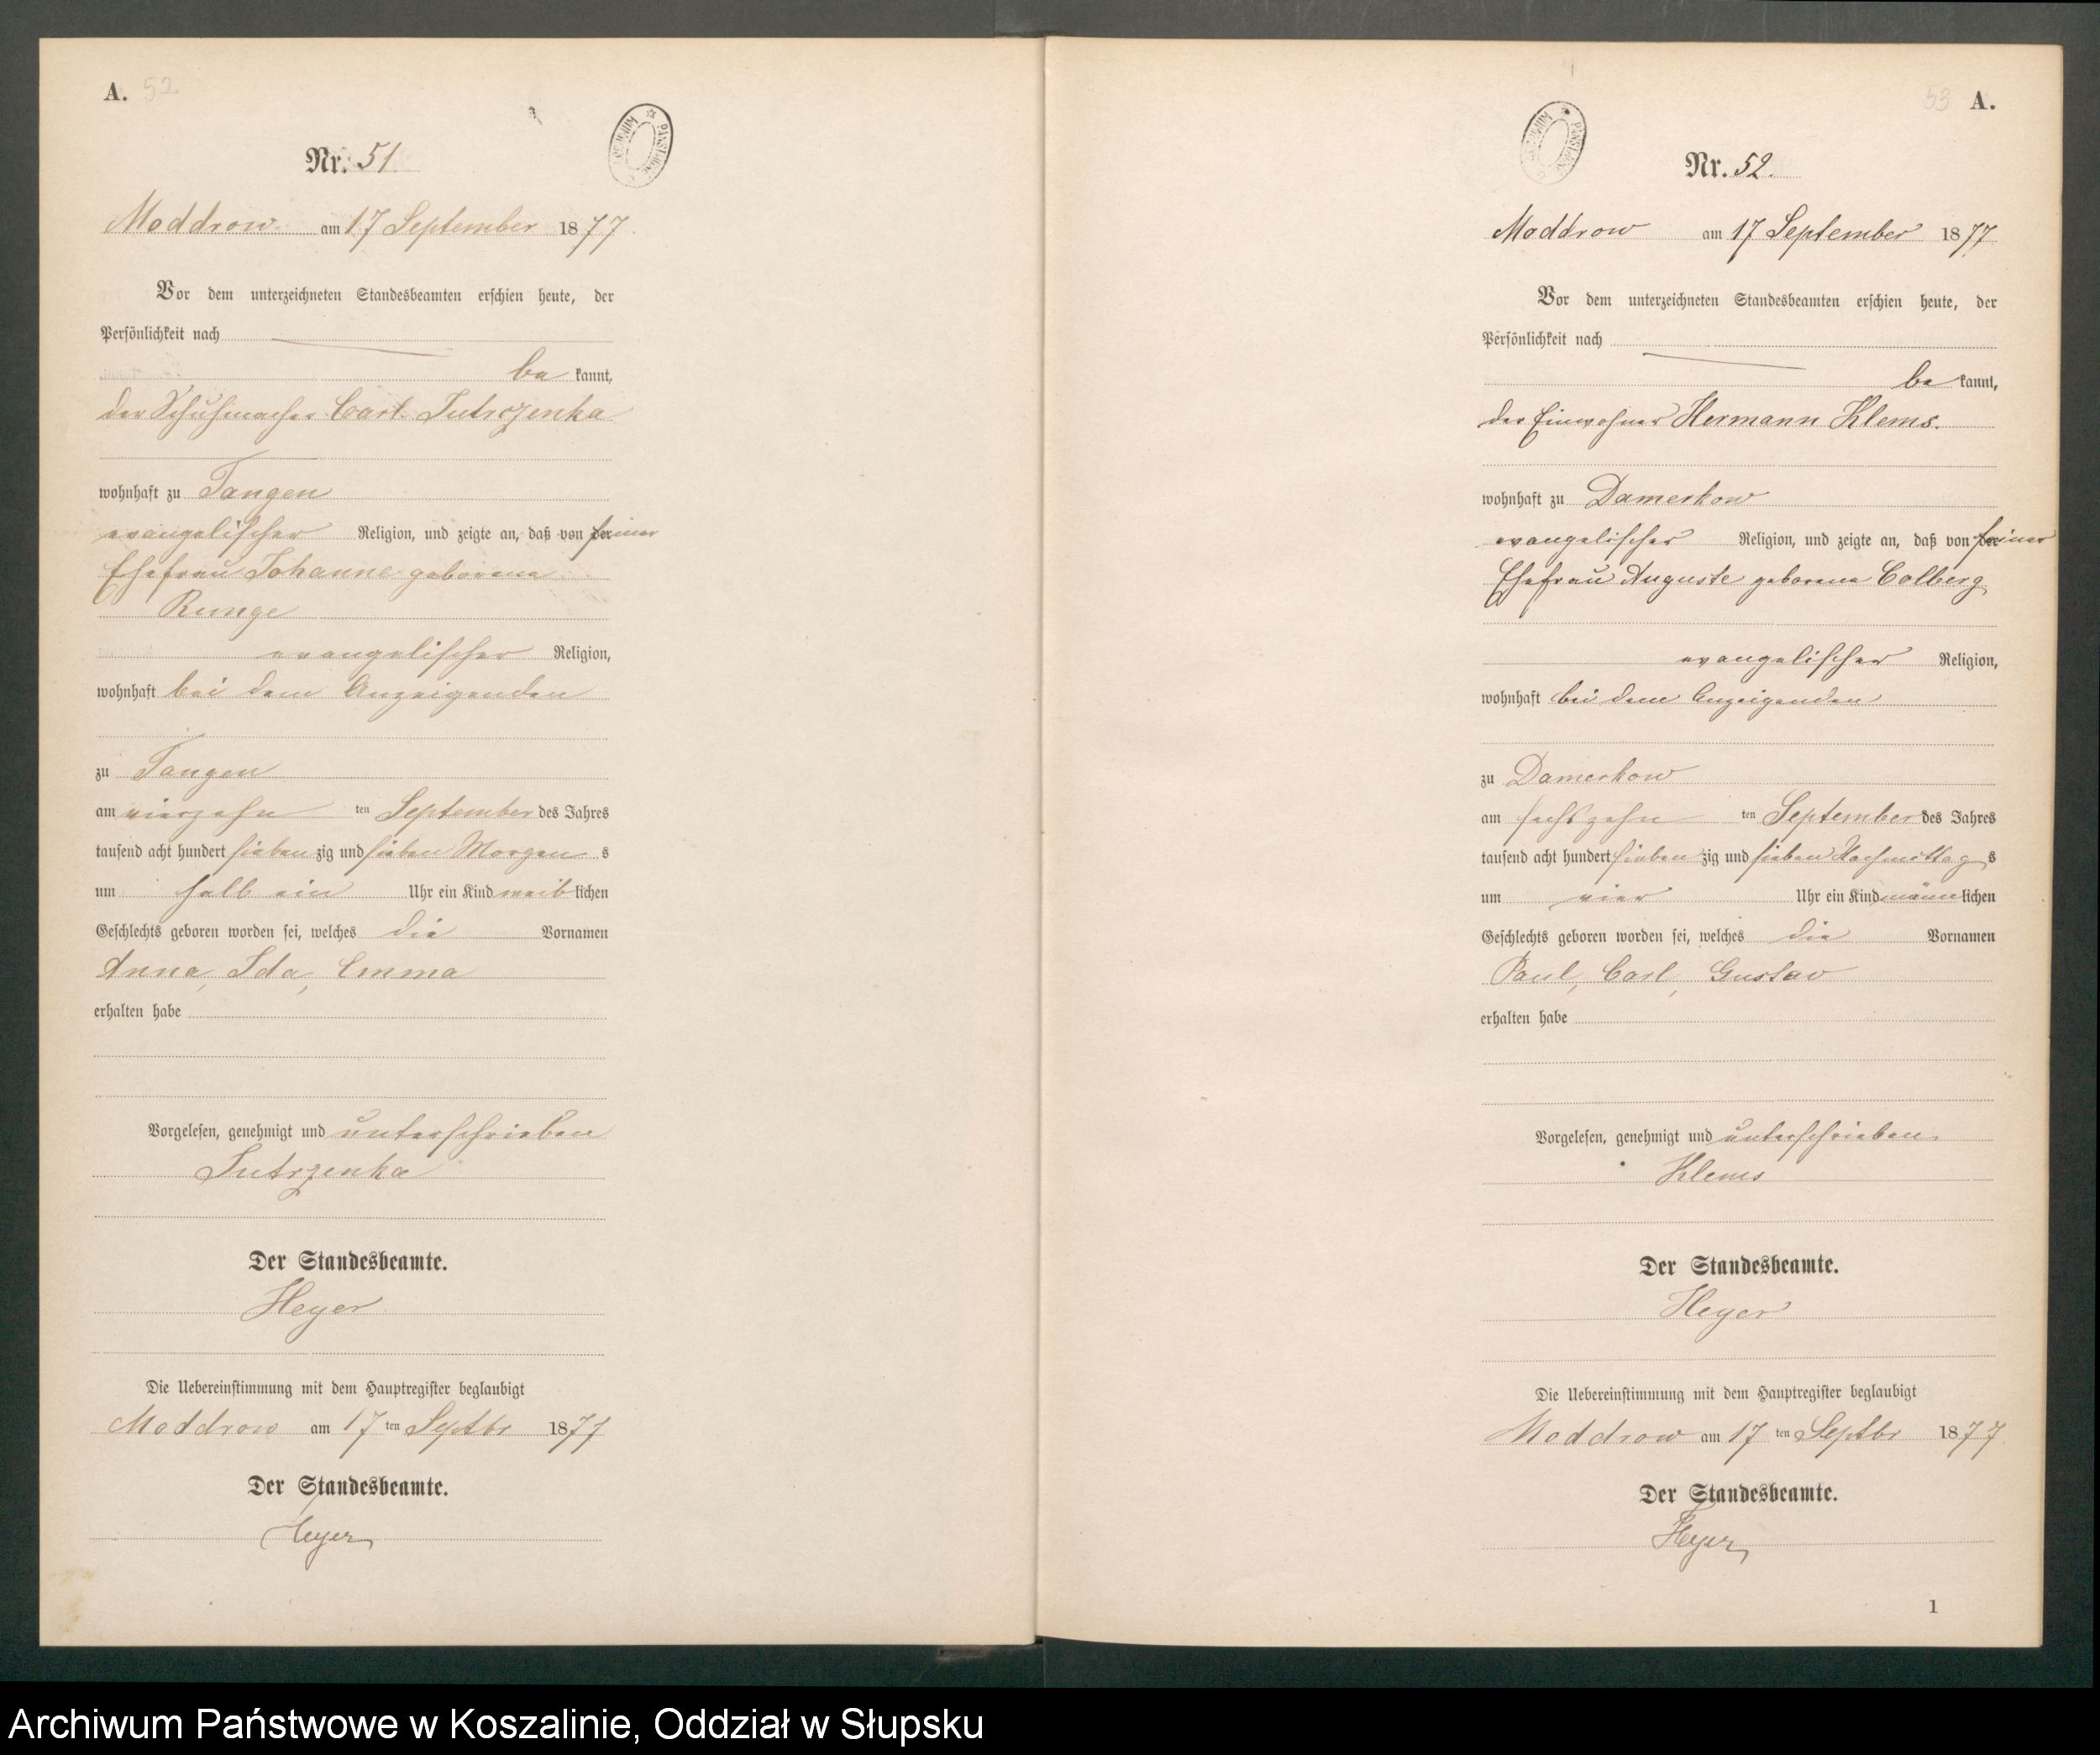 A. 52
Nr. 51.
Moddrow am 17 September 1877.
Vor dem unterzeichneten Standesbeamten erschien heute, der
Persönlichkeit nach
be kannt,
der Schuhmacher Carl Jutrzenka
wohnhaft zu Tangen
evangelischer Religion, und zeigte an, daß von der seiner
Ehefrau Johanne geborene
Runge
evangelischer Religion,
wohnhaft bei dem Anzeigenden
zu Tangen
am vierzehn ten September des Jahres
tausend acht hundert sieben zig und sieben Morgen s
um halb ein Uhr ein Kind weib lichen
Geschlechts geboren worden sei, welches die Vornamen
Anna, Ida, Emma
erhalten habe
Vorgelesen, genehmigt und unterschrieben
Jutrzenka
Der Standesbeamte.
Heyer
Die Uebereinstimmung mit dem Hauptregister beglaubigt
Moddrow am 17 ten Septbr 1877
Der Standesbeamte.
Heyer
53 A.
Nr. 52.
Moddrow am 17 September 1877
Vor dem unterzeichneten Standesbeamten erschien heute, der
Persönlichkeit nach
be kannt,
der Einwohner Hermann Klems.
wohnhaft zu Damerkow
evangelischer Religion, und zeigte an, daß von der seiner
Ehefrau Auguste geborene Colberg
evangelischer Religion,
wohnhaft bei dem Anzeigenden
zu Damerkow
am sechszehn ten September des Jahres
tausend acht hundert sieben zig und sieben Nachmittag s
um vier Uhr ein Kind männ lichen
Geschlechts geboren worden sei, welches die Vornamen
Paul, Carl, Gustav
erhalten habe
Vorgelesen, genehmigt und unterschrieben.
Klems
Der Standesbeamte.
Heyer
Die Uebereinstimmung mit dem Hauptregister beglaubigt
Moddrow am 17 ten Septbr 1877.
Der Standesbeamte.
Heyer
1
Archiwum Państwowe w Koszalinie, Oddział w Słupsku